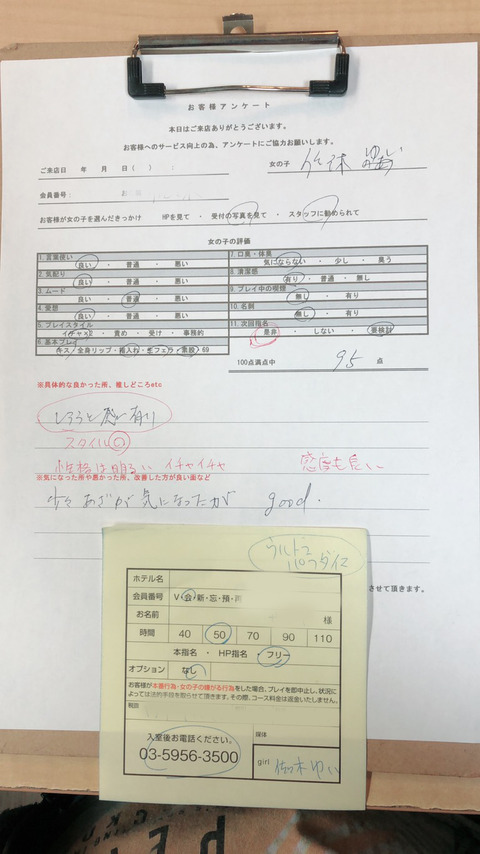 お客様アンケート
本日はご来店ありがとうございます。
お客様へのサービス向上の為、アンケートにご協力お願いします。
ご来店日 年 月 日( ) 女の子
会員番号:
お客様が女の子を選んだきっかけ HPを見て ・ 受付の写真を見て ・ スタッフに勧められて
女の子の評価
1. 言葉使い
良い ・ 普通 ・ 悪い
2. 気配り
良い ・ 普通 ・ 悪い
3. ムード
良い ・ 普通 ・ 悪い
4. 愛想
良い ・ 普通 ・ 悪い
5. プレイスタイル
イチャイチャ ・ 責め ・ 受け ・ 事務的
6. 基本プレイ
キス/全身リップ・指入れ・生フェラ・素股・69
7. 口臭・体臭
気にならない ・ 少し ・ 臭う
8. 清潔感
有り ・ 普通 ・ 無し
9. プレイ中の喫煙
無し ・ 有り
10. 名刺
無し ・ 有り
11. 次回指名
是非 ・ しない ・ 要検討
100点満点中 95 点
※具体的な良かった所、推しどころetc
しろうと感有り
スタイル◎
性格は明るい イチャイチャ 感度も良い
※気になった所や悪かった所、改善した方が良い面など
少々あざが気になったが good.
させて頂きます。
ウルトラ
パラダイス
ホテル名
会員番号 V・会・新・忘・預・再
お名前 様
時間 40 50 70 90 110
本指名 ・ HP指名 ・ フリー
オプション なし
お客様が本番行為・女の子の嫌がる行為をした場合、プレイを即中止し、状況に
よっては法的手目を取らせて頂きます。その際、コース料金は返金いたしません。
入室後お電話ください。
03-5956-3500
媒体
girl 佐々木ゆい